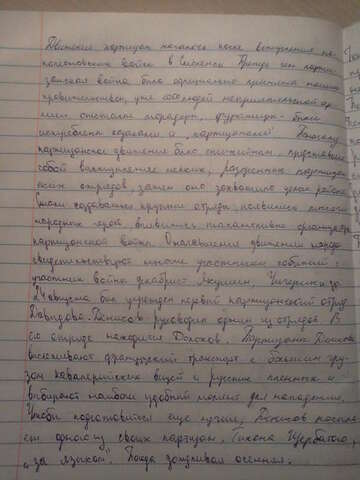 Движение партизан началось после вступления на-
полеоновских войск в Смоленск. Прежде чем парти-
занская война была официально принята нашим
правительством, уже 1000 людей неприятельской ар-
мии отсталые мародеры, фуражиры были
истреблены казаками и "партизанами". Вначале
партизанское движение было стихийным, представляло
собой выступление мелких, разрозненных партизан-
ских отрядов, затем оно захватило целые районы
Стали создаваться крупные отряды, появились тысячи
народных героев, выявились талантливые организаторы
партизанской войны. О начавшемся движении народа
свидетельствуют многие участники событий:
участник войны декабрист Якушин,
24 августа был учрежден первый партизанский отряд
Давыдова. Денисов руководил одним из отрядов. В
его отряде находится Долохов. Партизаны Денисова
выслеживают французский транспорт с большим гру-
зом кавалерийских вещей и русских пленных и
выбирают наиболее удобный момент для нападения.
Чтобы подготовиться еще лучше, Денисов посыла-
ет одного из своих партизан, Тихона Щербатого,
"за языком". Погода дождливая осенняя.